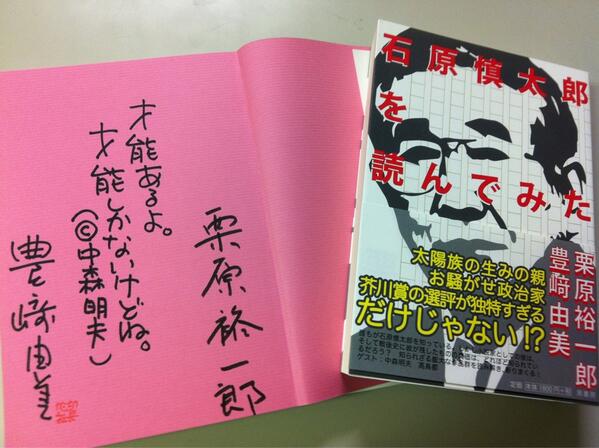 栗原裕一郎
才能あるよ。
才能しかないけどね。
（©中森明夫）
豊﨑由美
石原慎太郎
を
読んでみた
栗原裕一郎
豊﨑由美
原書房
太陽族の生みの親
お騒がせ政治家
芥川賞の選評が独特すぎる
だけじゃない!?
ゲスト：中森明夫
定価 本体1800円+税